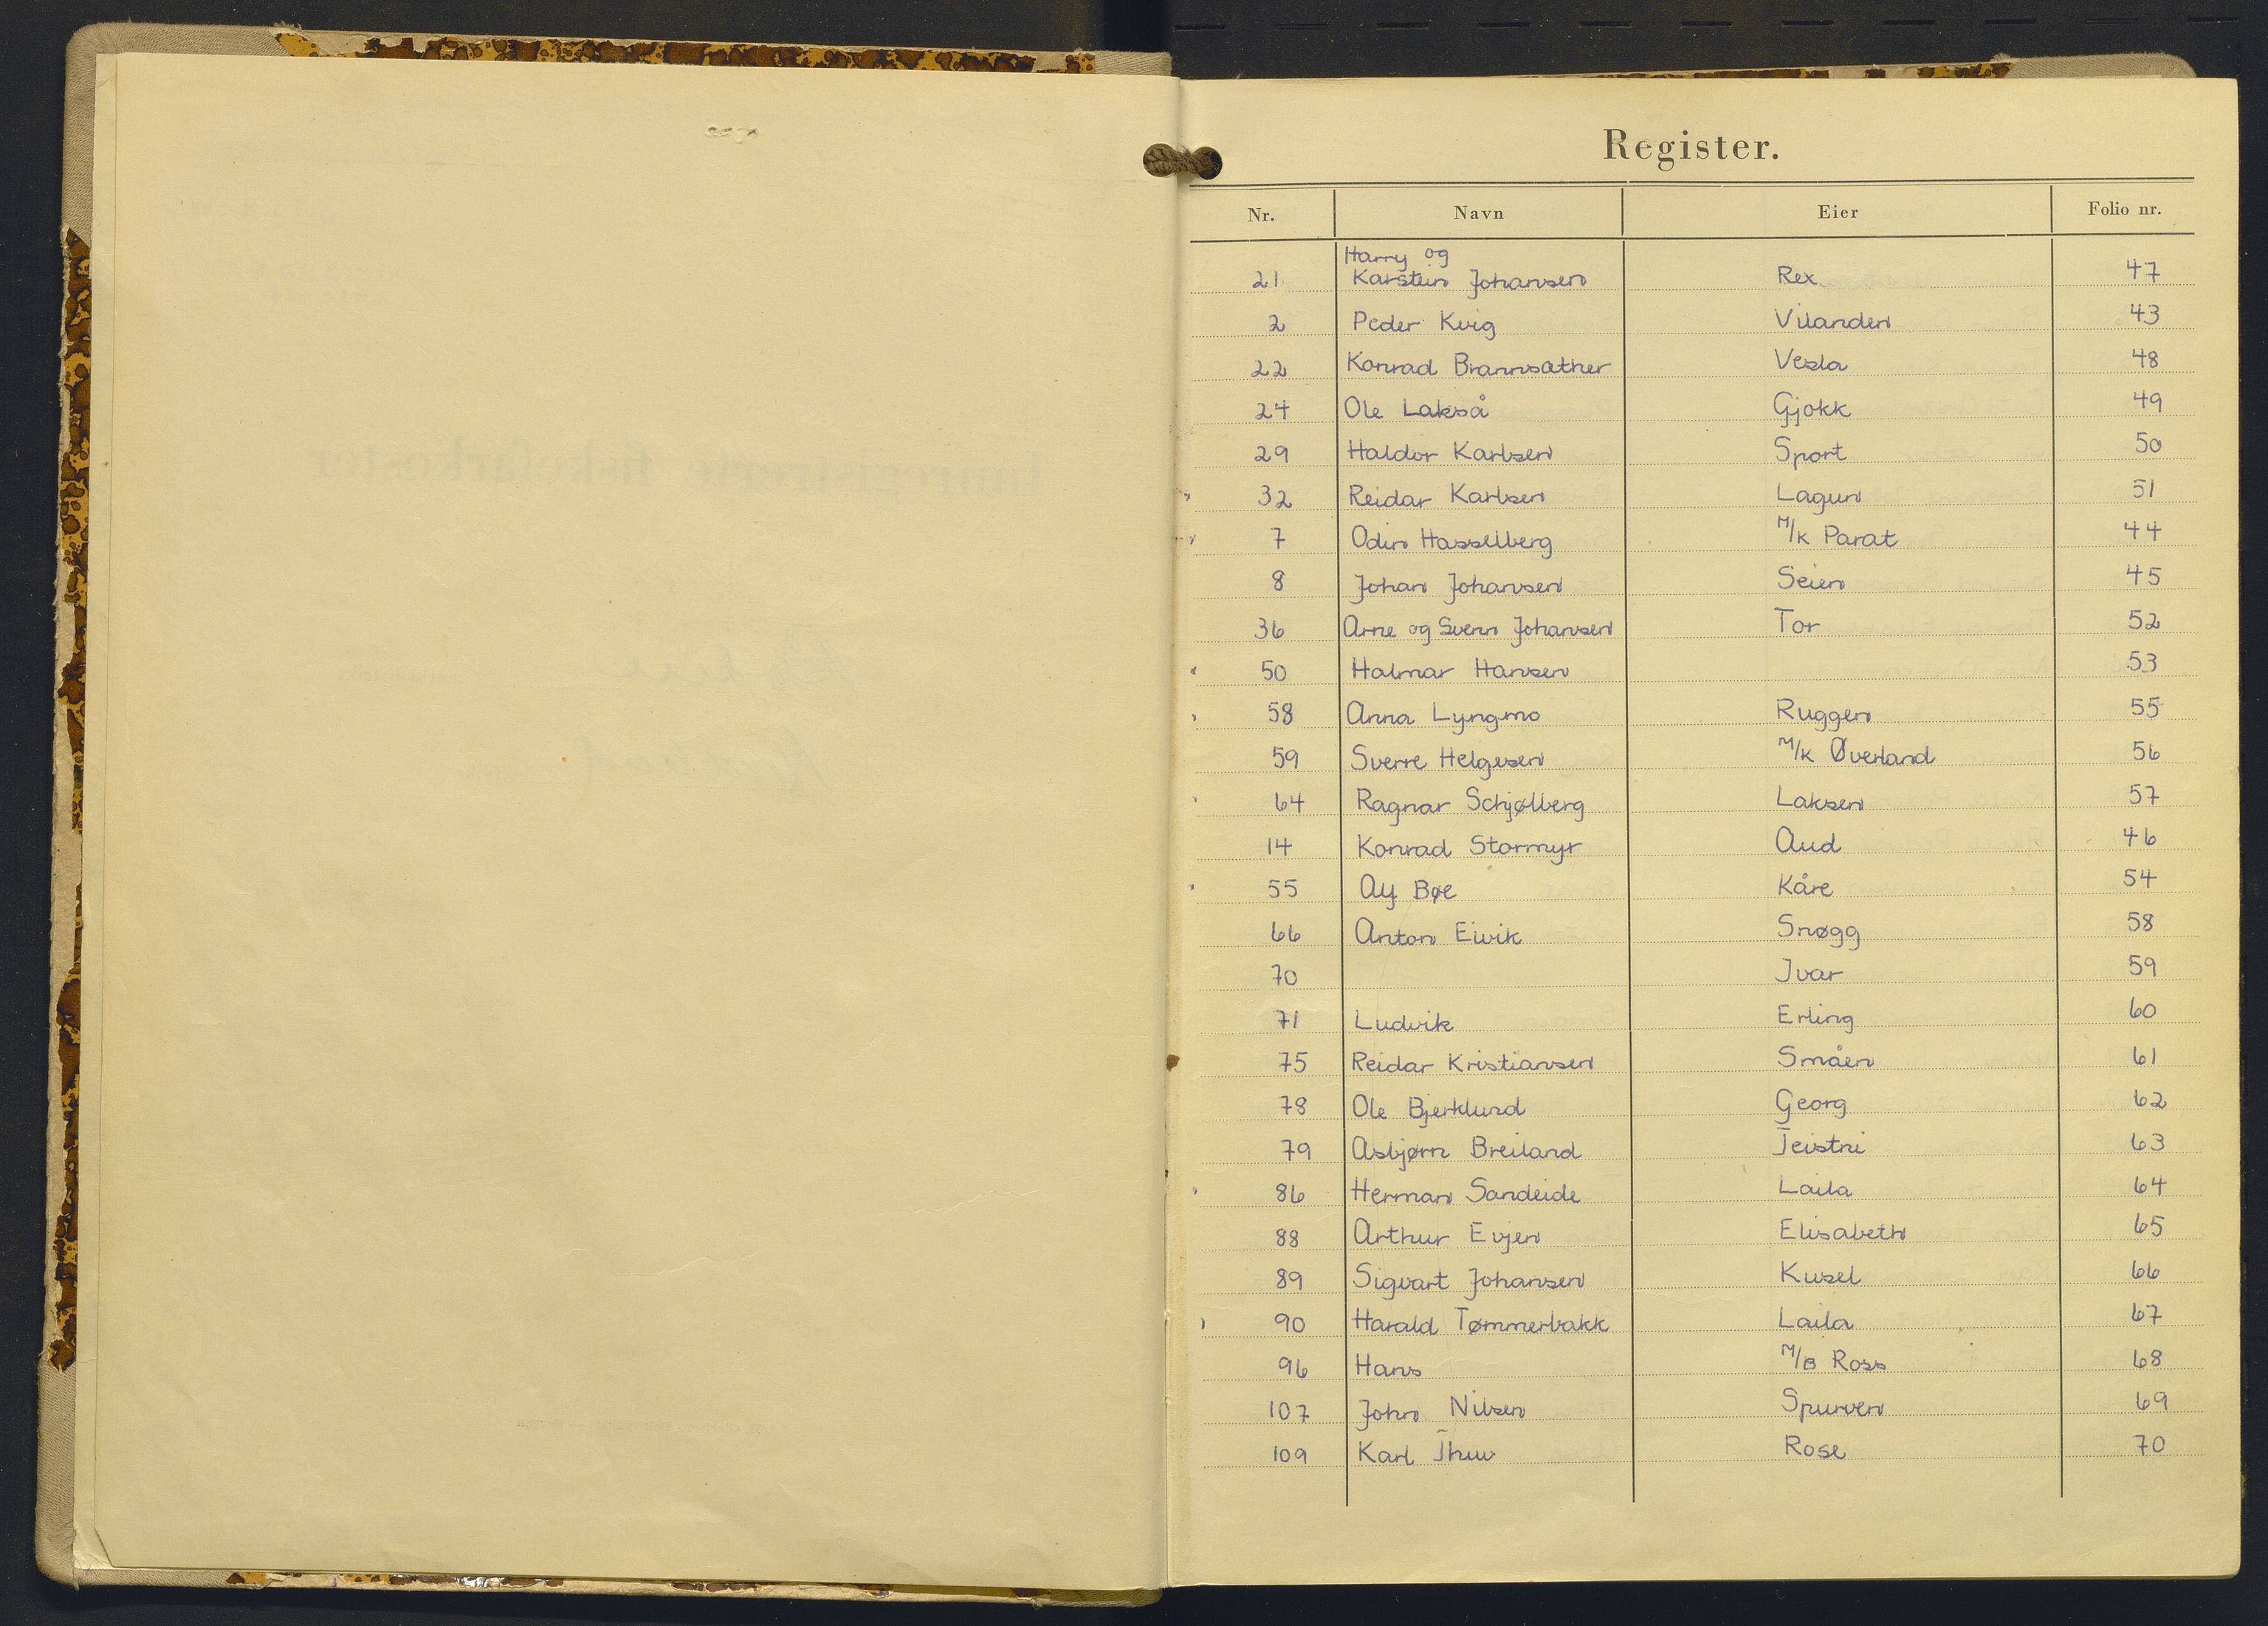 Register.
Nr. Navn Eier Folio nr.
Harry og
21 Karstein Johansen Rex 47
2 Peder Kvig Vilanden 43
22 Konrad Brannsæther Vesla 48
24 Ole Lakså Gjøkk 49
29 Haldor Karlsen Sport 50
32 Reidar Karlsen Lagun 51
7 Odin Hasselberg M/K Parat 44
8 Johan Johansen Seien 45
36 Arne og Svenn Johansen Tor 52
50 Halmar Hansen 53
58 Anna Lyngmo Ruggen 55
59 Sverre Helgesen M/K Øverland 56
64 Ragnar Schjølberg Laksen 57
14 Konrad Stormyr Aud 46
55 Alf Bøe Kåre 54
66 Anton Eivik Snøgg 58
70 Ivar 59
71 Ludvik Erling 60
75 Reidar Kristiansen Småen 61
78 Ole Bjerklund Georg 62
79 Asbjørn Breiland Teistri 63
86 Herman Sandeide Laila 64
88 Arthur Evjen Elisabeth 65
89 Sigvart Johansen Kusel 66
90 Harald Tømmerbakk Laila 67
96 Hans M/B Ross 68
107 John Nilsen Spurven 69
109 Karl Thuv Rose 70